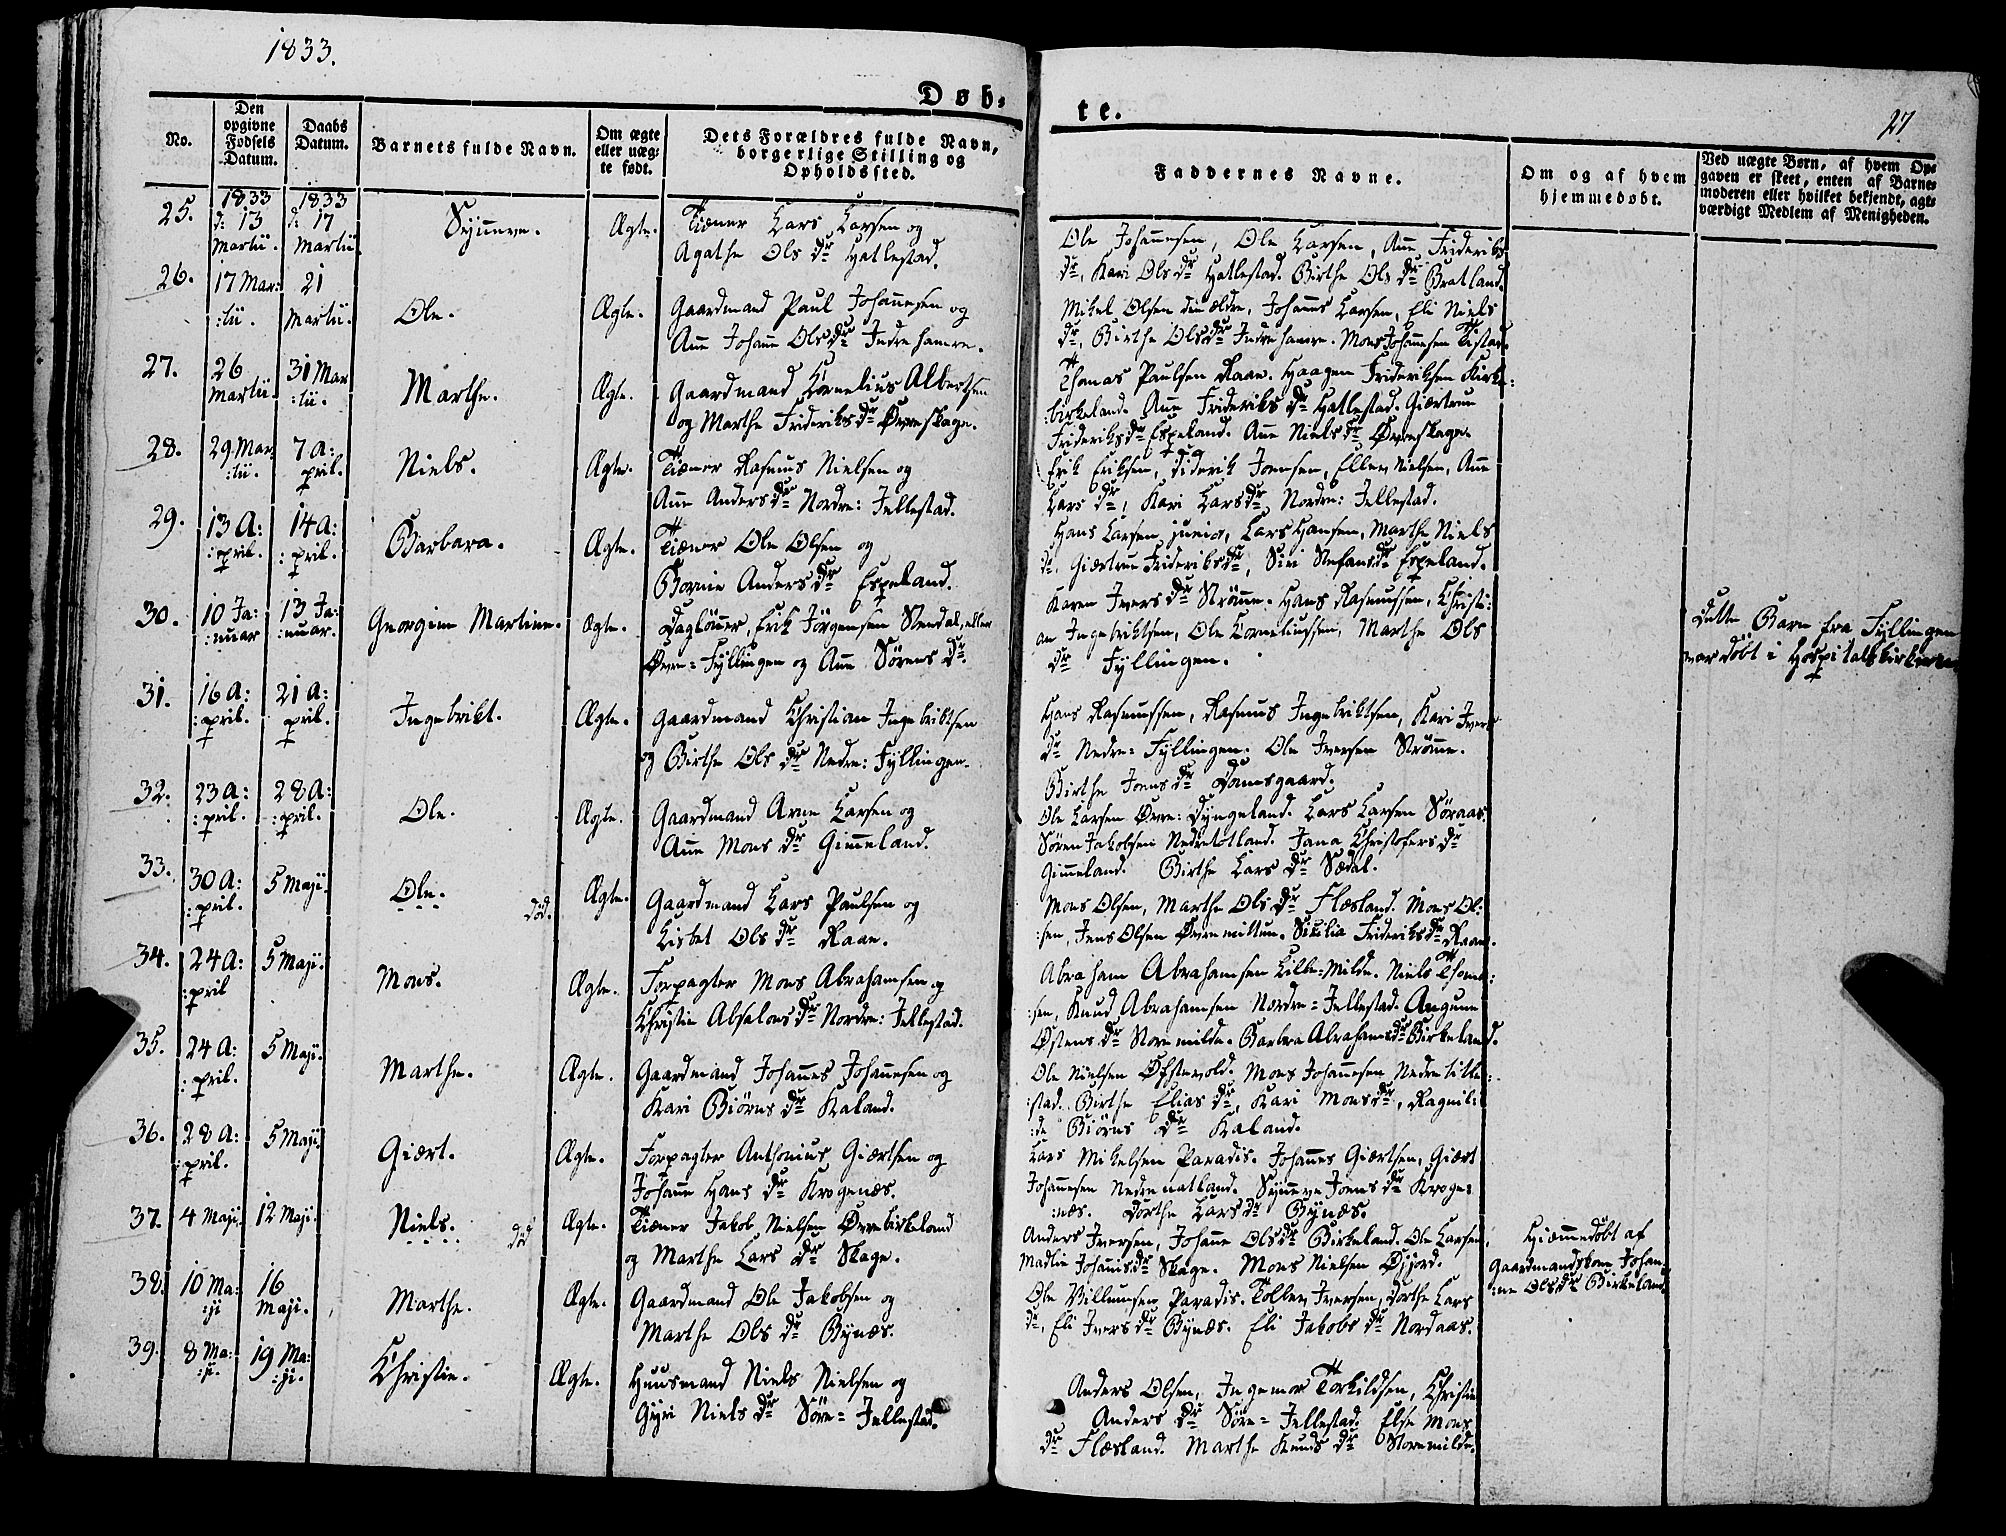 1833.
Døb-
te.
27
No.
Den
opgivne
Fødsels
Datum.
Daabs
Datum.
Barnets fulde Navn.
Om ægte
eller uæg-
te født.
Dets Forældres fulde Navn,
borgerlige Stilling og
Opholdssted.
Faddernes Navne.
Om og af hvem
hjemmedøbt.
Ved uægte Børn, af hvem Op-
gaven er skeet, enten af Barne-
moderen eller hvilket bekjendt, agt-
værdigt Medlem af Menigheden.
25.
1833
d: 13
Martii.
1833
d: 17
Martii.
Syneve.
Ægte.
Tiæner Lars Larsen og
Agathe Ols dr Hatlestad.
Ole Johannesen, Ole Larsen, Anne Frideriks
dr, Kari Ols dr Hatlestad. Birthe Ols dr Bratland.
26.
17 Mar:
:tii.
21
Martii.
Ole.
Ægte.
Gaardmand Paul Johannesen og
Anne Johanne Ols dr Indrehamre.
Mikel Olsen den ældre, Johannes Larsen, Eli Niels
dr, Birthe Ols dr Indrehamre. Mons Johannesen Titlestad.
27.
26
Martii.
31 Mar
:tii.
Marthe.
Ægte.
Gaardmand Kornelius Albertsen
og Marthe Frideriks dr Øvreskage.
Thomas Paulsen Raae. Haagen Frideriksen Kirke:
:birkeland. Anne Frideriks dr Hatlestad. Giærtrue
Frideriks dr Espeland. Anne Niels dr Øvreskage.
28.
29 Mar:
:tii.
7 A:
pril.
Niels.
Ægte.
Tiæner Rasmus Nielsen og
Anne Anders dr Nordre: Jellestad.
Erik Eriksen, Diderik Joensen, Ellen Nielsen, Anne
Lars dr, Kari Lars dr Nordre: Jellestad.
29.
13 A:
:pril.
14 A:
:pril.
Barbara.
Ægte.
Tiæner Ole Olsen og
Borni Anders dr Espeland.
Hans Larsen junior, Lars Hansen, Marthe Niels
dr, Giærtrue Frideriks dr, Siri Stefans dr Espeland.
30.
10 Ja:
:nuar
13 Ja:
:nuar.
Georgine Martine.
Ægte.
Daglønner, Erik Jørgensen Stendal, eller
Øvre=Fyllingen og Anne Sørens dr.
Karen Ivers dr Strømme. Hans Rasmussen, Christi:
an Ingebriktsen, Ole Korneliussen, Marthe Ols
dr Fyllingen.
Dette Barn fra Fyllingen
var døbt i Hospitalskirken
31.
16 A:
:pril.
21 A:
pril.
Ingebrikt.
Ægte.
Gaardmand Christian Ingebriktsen
og Birthe Ols dr Nedre: Fyllingen.
Hans Rasmussen, Rasmus Ingebriktsen, Kari Ivers
dr Nedre=Fyllingen. Ole Iversen Strømme.
Birthe Joens dr Damsgaard.
32.
23 A:
:pril.
28 A:
:pril.
Ole.
Ægte.
Gaardmand Arne Larsen og
Anne Mons dr Gimmeland.
Ole Larsen Øvre: Dyngeland. Lars Larsen Søraas.
Søren Jakobsen Nedretotland. Jana Christofers dr
Gimmeland. Birthe Lars dr Sædal.
33.
30 A:
:pril.
5 Maji.
Ole.
død.
Ægte.
Gaardmand Lars Paulsen og
Lisbet Ols dr Raae.
Mons Olsen, Marthe Ols dr Flæsland. Mons Ol:
:sen, Jens Olsen Øvremittun. Sikilia Frideriks dr Raae.
34.
24 A:
:pril
5 Maji.
Mons.
Ægte.
Forpagter Mons Abrahamsen og
Christie Absalons dr Nordre: Jellestad.
Abraham Abrahamsen Lille=Milde. Niels Thom:
:sen, Knud Abrahamsen Nordre=Jellestad. Angunn
Østens dr Storemilde. Barbra Abrahams dr Birkeland.
35.
24 A:
:pril.
5 Maji.
Marthe.
Ægte.
Gaardmand Johannes Johannesen og
Kari Biørns dr Kaland.
Ole Nielsen Øfstevold. Mons Johannesen Nedretitle:
:stad. Birthe Elias dr, Kari Mons dr, Ragnil:
:de Biørns dr Kaland.
36.
28 A:
:pril.
5 Maji.
Giært.
Ægte.
Forpagter Anthonius Giærtsen og
Johanne Hans dr Krogenæs.
Lars Mikelsen Paradis. Johannes Giærtsen, Giært
Johannesen Nedrenatland. Syneve Joens dr Kroge:
:næs. Dorthe Lars dr Bynæs.
37.
4 Maji.
12 Maji.
Niels.
død
Ægte.
Tiæner Jakob Nielsen Øvrebirkeland
og Marthe Lars dr Skage.
Anders Iversen, Johanne Ols dr Birkeland. Ole Larsen,
Madlie Johannis dr Skage. Mons Nielsen Øjjord.
Hiemmedøbt af
Gaardmandskone Johan:
:ne Ols dr Birkeland
38.
10 Ma:
:ji
16
Maji.
Marthe.
Ægte.
Gaardmand Ole Jakobsen og
Marthe Ols dr Bynæs.
Ole Villumsen Paradis. Tollev Iversen, Dorthe Lars
dr, Eli Ivers dr Bynæs. Eli Jakobs dr Nordaas.
39.
8 Ma:
:ji.
19 Ma:
:ji.
Christie.
Ægte.
Huusmand Niels Nielsen og
Gyri Niels dr Søre=Jellestad.
Anders Olsen, Ingemor Torkildsen, Christie
Anders dr Søre=Jellestad. Else Mons
dr Flæsland. Marthe Knuds dr Storemilde.